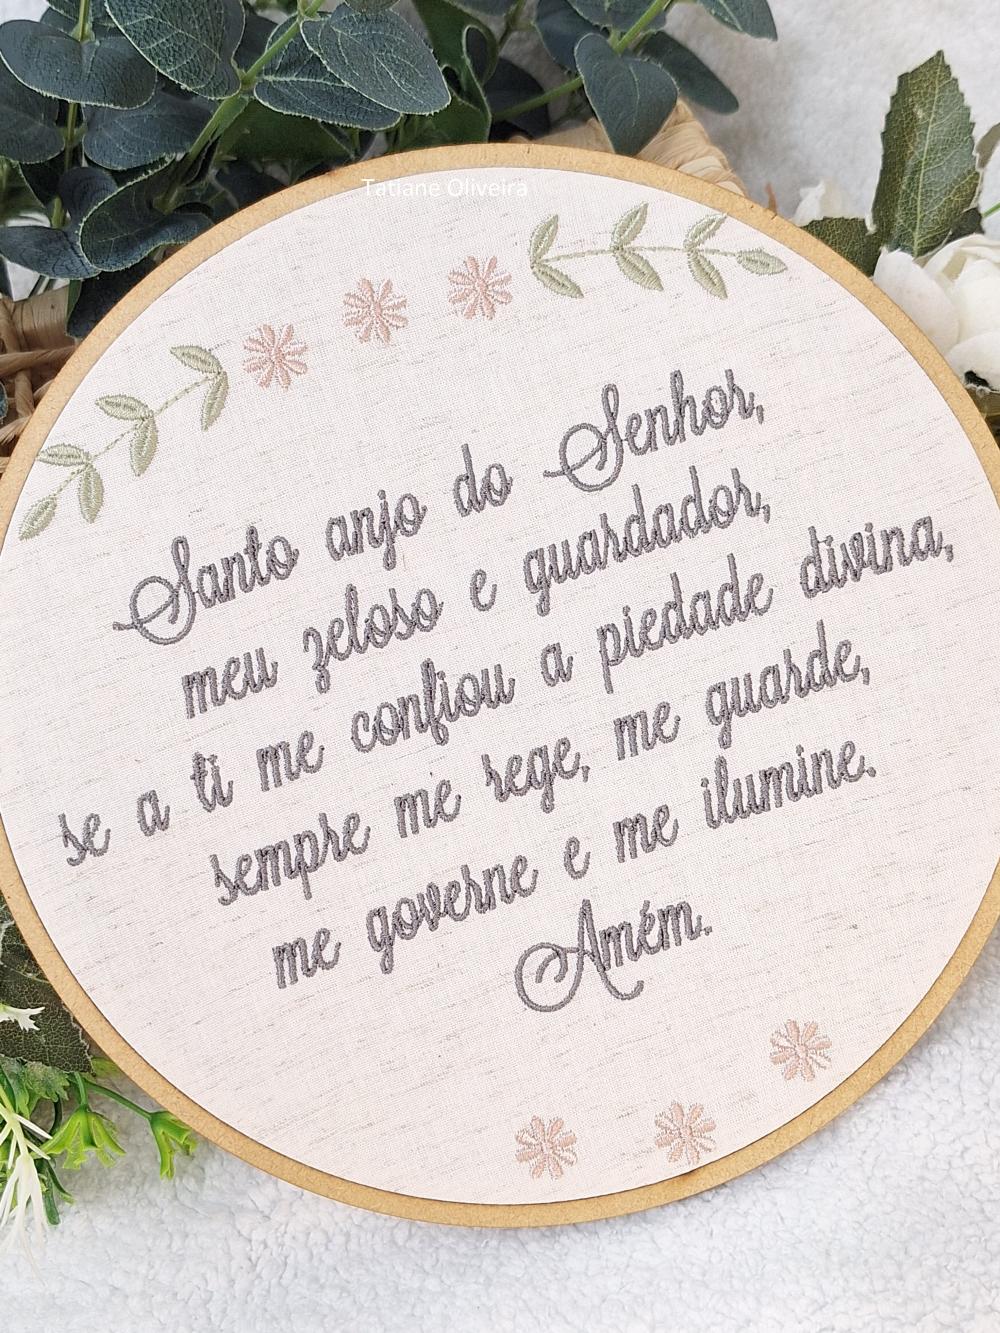 Tatiane Oliveira
Santo anjo do Senhor,
meu zeloso e guardador,
se a ti me confiou a piedade divina,
sempre me rege, me guarde,
me governe e me ilumine.
Amém.